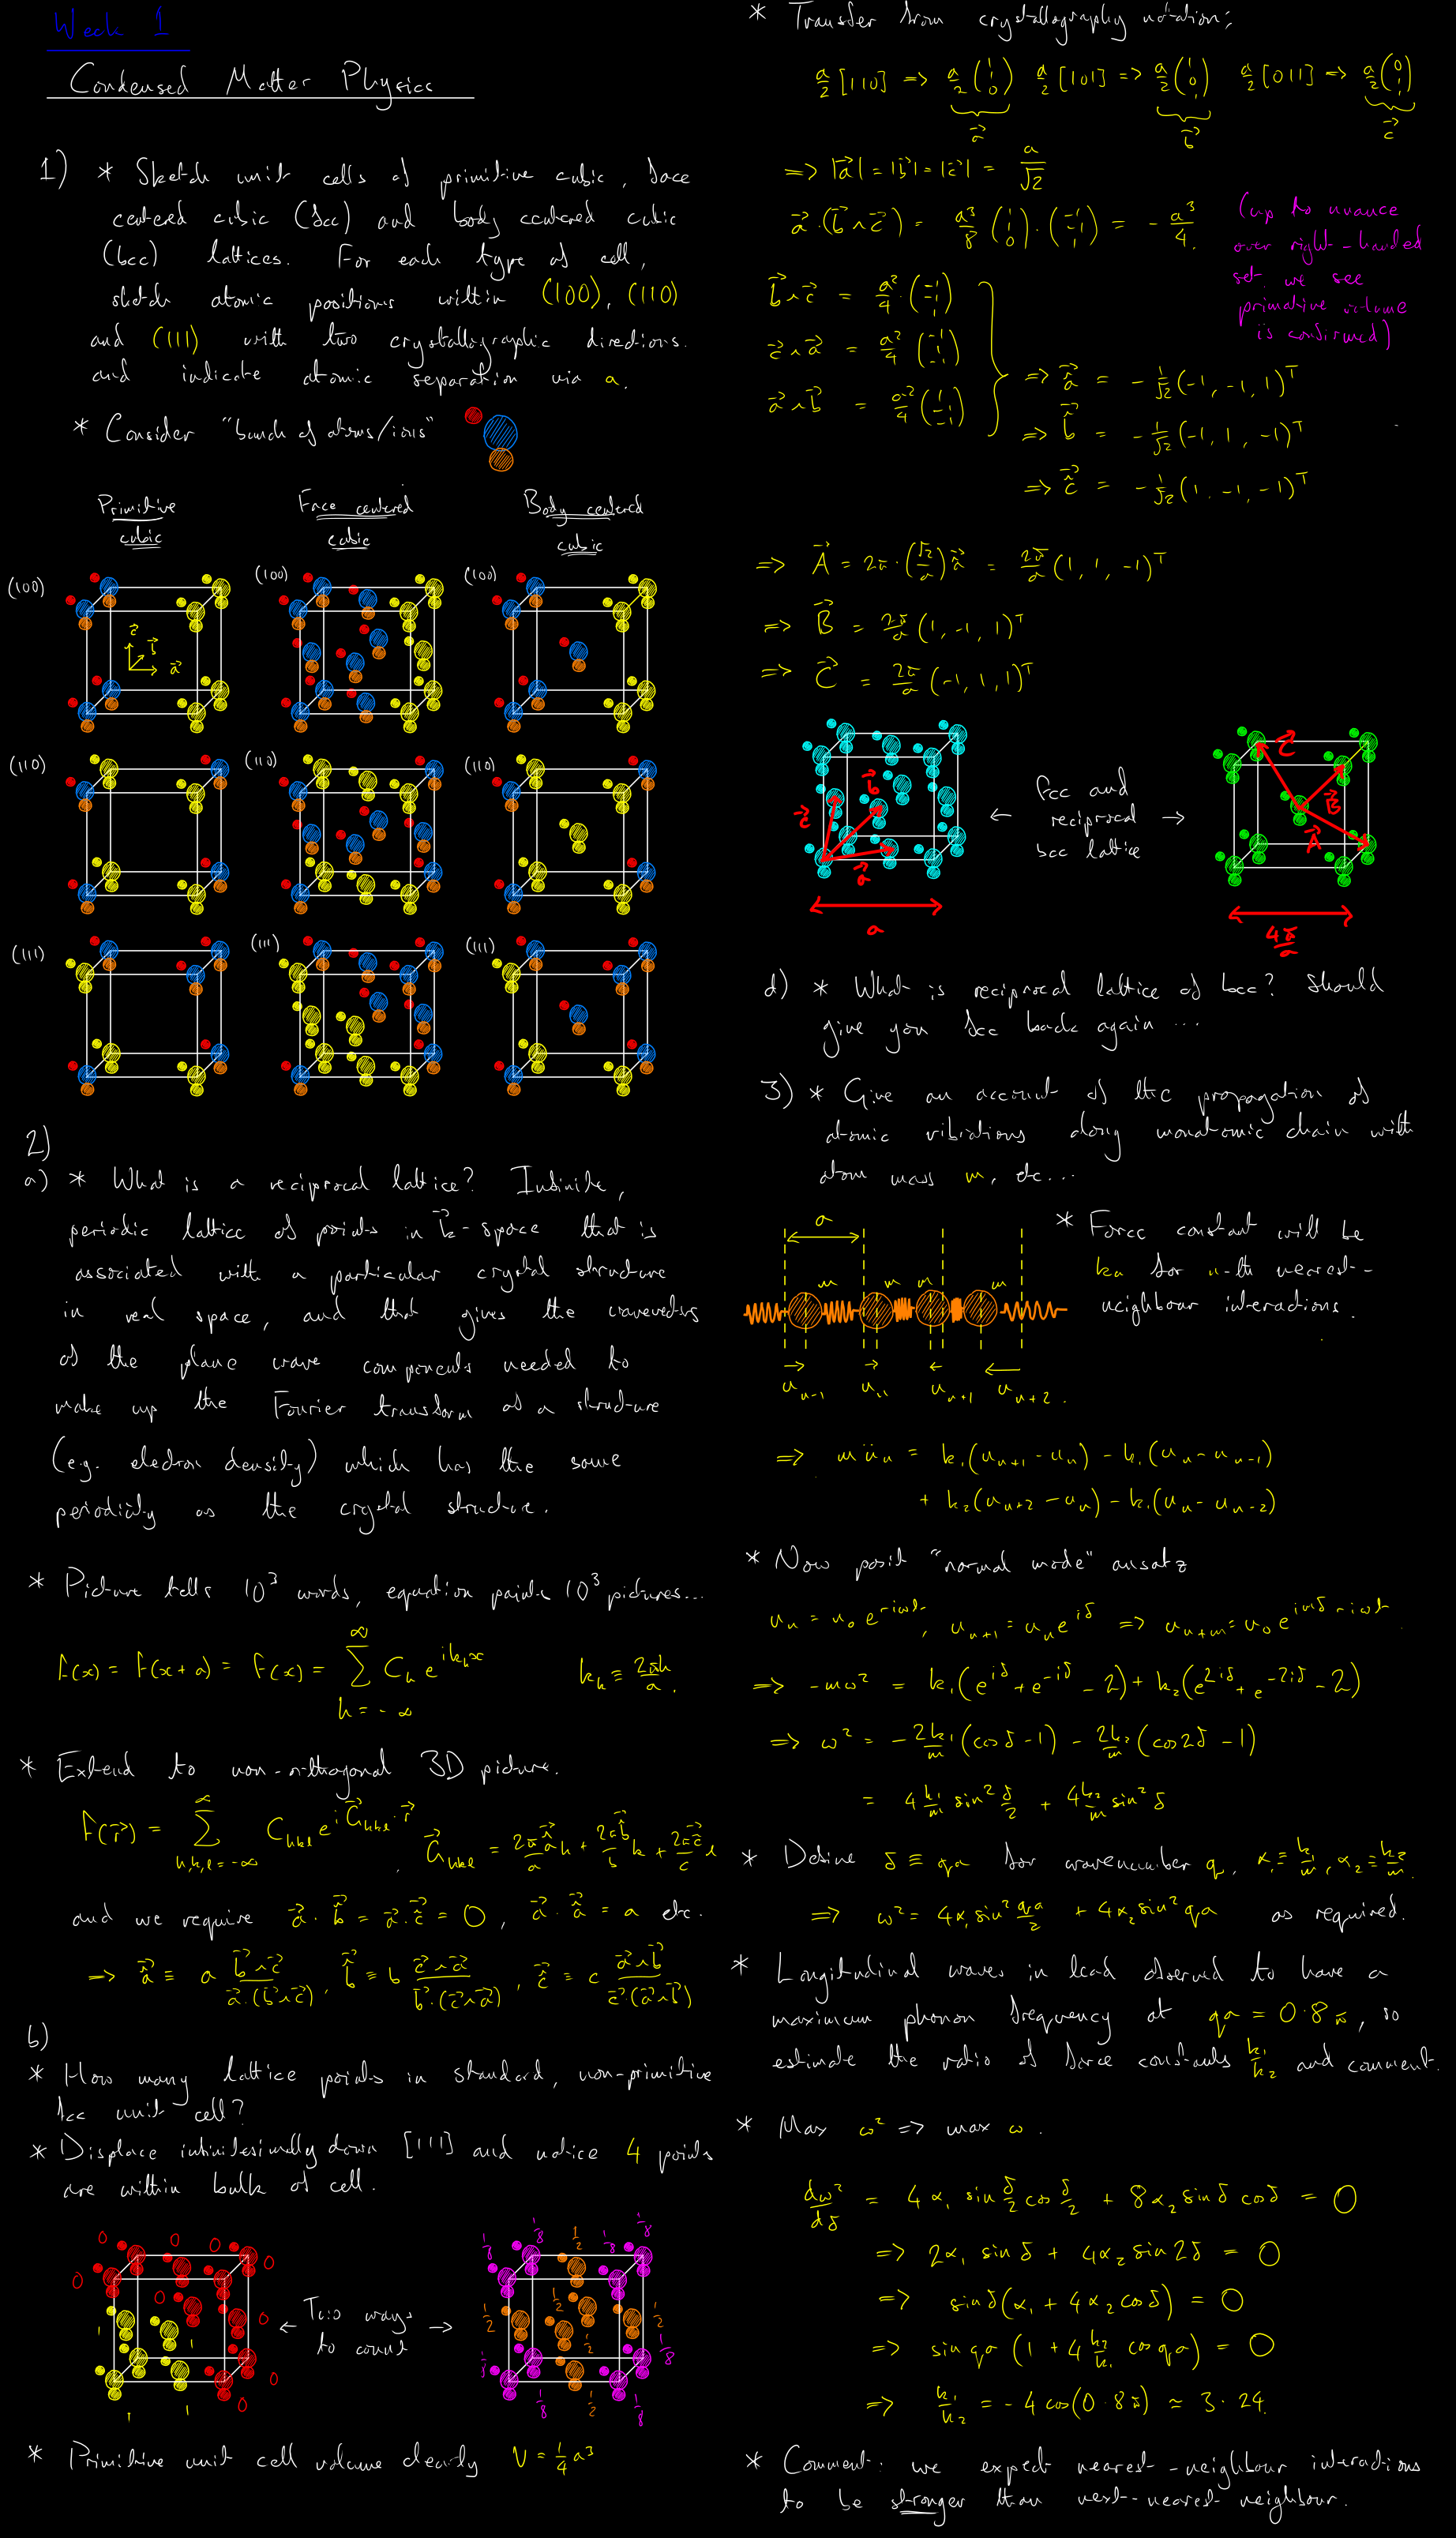 Week 1
Condensed Matter Physics
1) * Sketch unit cells of primitive cubic, face
centered cubic (fcc) and body centered cubic
(bcc) lattices. For each type of cell,
sketch atomic positions within (100), (110)
and (111) with two crystallographic directions.
and indicate atomic separation via a.
* Consider "bunch of atoms/ions"
Primitive cubic
Face centered cubic
Body centered cubic
(100) (100) (100)
c⃗ b⃗ a⃗
(110) (110) (110)
(111) (111) (111)
2)
a) * What is a reciprocal lattice? Infinite,
periodic lattice of points in k⃗-space that is
associated with a particular crystal structure
in real space, and that gives the wavevectors
of the plane wave components needed to
make up the Fourier transform of a structure
(e.g. electron density) which has the same
periodicity as the crystal structure.
* Picture tells 10³ words, equation paints 10³ pictures...
f(x) = f(x+a) = f(x) = ∑_{h=-∞}^{∞} C_h e^{ik_h x} k_h ≡ 2πh/a.
* Extend to non-orthogonal 3D picture.
f(r⃗) = ∑_{h,k,l=-∞}^{∞} C_{hkl} e^{iG⃗_{hkl}·r⃗}, G⃗_{hkl} = 2π/a â⃗ h + 2π/b b̂⃗ k + 2π/c ĉ⃗ l
and we require a⃗·b̂⃗ = a⃗·ĉ⃗ = 0, a⃗·â⃗ = a etc.
=> â⃗ ≡ a (b⃗∧c⃗)/(a⃗·(b⃗∧c⃗)), b̂⃗ ≡ b (c⃗∧a⃗)/(b⃗·(c⃗∧a⃗)), ĉ⃗ ≡ c (a⃗∧b⃗)/(c⃗·(a⃗∧b⃗))
b)
* How many lattice points in standard, non-primitive
fcc unit cell?
* Displace infinitesimally down [111] and notice 4 points
are within bulk of cell.
0 0 0 0 0 0 0 0 0 1 1 1 1
<- Two ways to count ->
1/8 1/8 1/8 1/8 1/2 1/2 1/2 1/2 1/2 1/2 1/8 1/8 1/8 1/8
* Primitive unit cell volume clearly V = 1/4 a³
* Transfer from crystallography notation;
a/2 [110] => a/2 (1 1 0) a/2 [101] => a/2 (1 0 1) a/2 [011] => a/2 (0 1 1)
a⃗ b⃗ c⃗
=> |a⃗| = |b⃗| = |c⃗| = a/√2
a⃗·(b⃗∧c⃗) = a³/8 (1 1 0)·(-1 -1 1) = - a³/4.
(up to nuance
over right-handed
set, we see
primative volume
is confirmed)
b⃗∧c⃗ = a²/4 · (-1 -1 1)
c⃗∧a⃗ = a²/4 (-1 1 -1)
a⃗∧b⃗ = a²/4 (1 -1 -1)
=> â⃗ = - 1/√2 (-1, -1, 1)ᵀ
=> b̂⃗ = - 1/√2 (-1, 1, -1)ᵀ
=> ĉ⃗ = - 1/√2 (1, -1, -1)ᵀ
=> A⃗ = 2π·(√2/a) â⃗ = 2π/a (1, 1, -1)ᵀ
=> B⃗ = 2π/a (1, -1, 1)ᵀ
=> C⃗ = 2π/a (-1, 1, 1)ᵀ
c⃗ b⃗ a⃗ a
<- fcc and reciprocal bcc lattice ->
C⃗ B⃗ A⃗ 4π/a
d) * What is reciprocal lattice of bcc? Should
give you fcc back again...
3) * Give an account of the propagation of
atomic vibrations along monatomic chain with
atom mass m, etc...
a
m m m m
u_{n-1} u_n u_{n+1} u_{n+2}.
* Force constant will be
k_n for n-th nearest-
neighbour interactions.
=> m ü_n = k₁(u_{n+1} - u_n) - k₁(u_n - u_{n-1})
+ k₂(u_{n+2} - u_n) - k₁(u_n - u_{n-2})
* Now posit "normal mode" ansatz
u_n = u₀ e^{-iωt}, u_{n+1} = u_n e^{iδ} => u_{n+m} = u₀ e^{imδ - iωt}.
=> -mω² = k₁(e^{iδ} + e^{-iδ} - 2) + k₂(e^{2iδ} + e^{-2iδ} - 2)
=> ω² = - 2k₁/m (cos δ - 1) - 2k₂/m (cos 2δ - 1)
= 4 k₁/m sin² δ/2 + 4 k₂/m sin² δ
* Define δ ≡ qa for wavenumber q, α₁ ≡ k₁/m, α₂ ≡ k₂/m.
=> ω² = 4α₁ sin² qa/2 + 4α₂ sin² qa as required.
* Longitudinal waves in lead observed to have a
maximum phonon frequency at qa = 0.8π, so
estimate the ratio of force constants k₁/k₂ and comment.
* Max ω² => max ω.
dω²/dδ = 4α₁ sin δ/2 cos δ/2 + 8α₂ sin δ cos δ = 0
=> 2α₁ sin δ + 4α₂ sin 2δ = 0
=> sin δ (α₁ + 4α₂ cos δ) = 0
=> sin qa (1 + 4 k₂/k₁ cos qa) = 0
=> k₁/k₂ = -4 cos(0.8π) ≃ 3.24.
* Comment: we expect nearest-neighbour interactions
to be stronger than next-nearest neighbour.